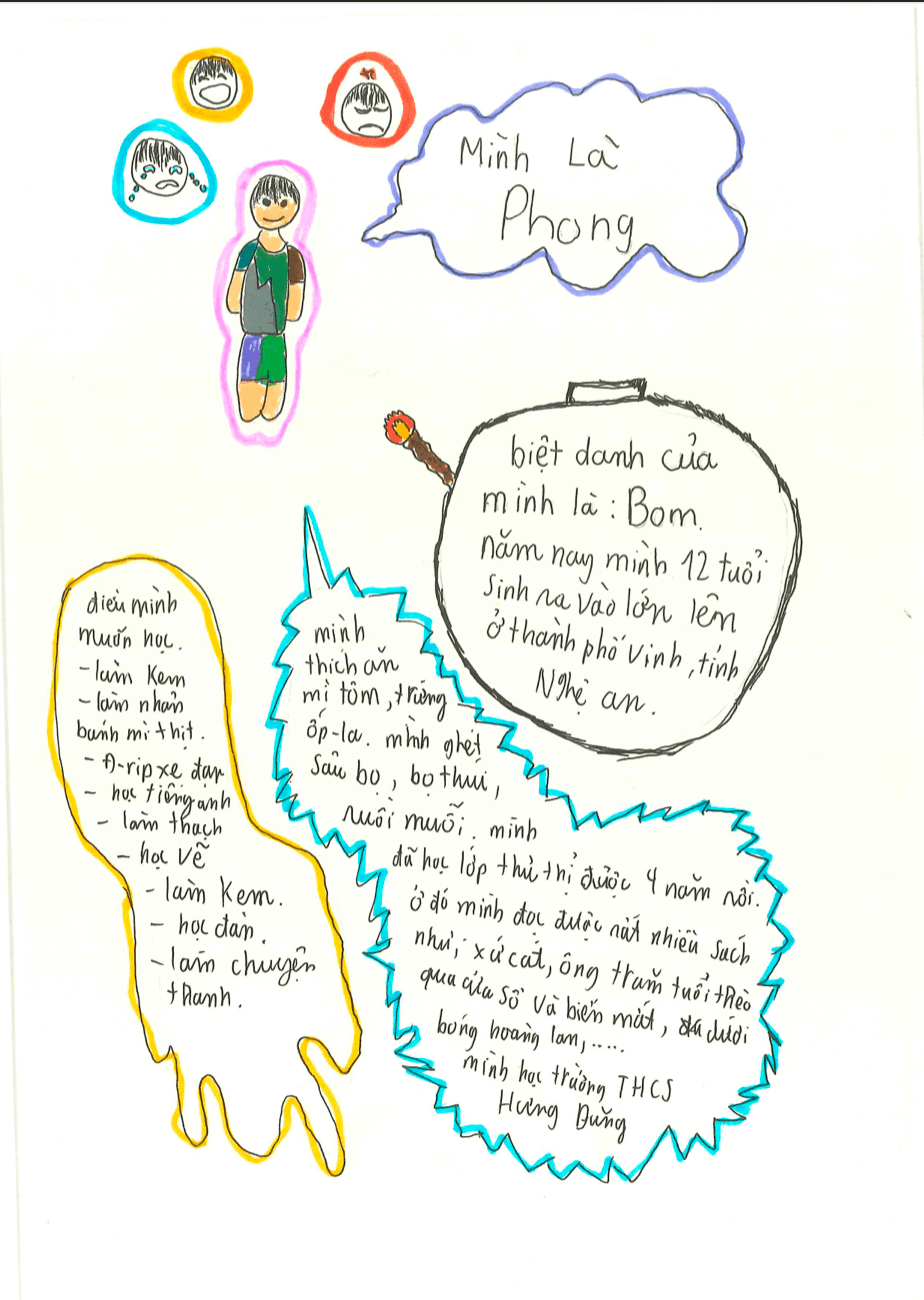 Mình Là
Phong
biệt danh của
mình là : Bom.
năm nay mình 12 tuổi
sinh ra vào lớn lên
ở thành phố vinh, tỉnh
Nghệ an.
điều mình
muốn học.
- làm Kem
- làm nhân
bánh mì thịt.
- Đ-rip xe đạp
- học tiếng anh
- làm thạch
- học vẽ
- làm Kem.
- học đàn.
- làm chuyện
tranh.
mình
thích ăn
mì tôm, trứng
ốp-la. mình ghét
sâu bọ, bọ thúi,
ruồi muỗi. mình
đã học lớp thủ thỉ được 4 năm rồi.
ở đó mình đọc được rất nhiều sách
như; xứ cát, ông trăm tuổi trèo
qua cửa sổ và biến mất, dưới
bóng hoàng lan,.....
mình học trường THCS
Hưng Dũng